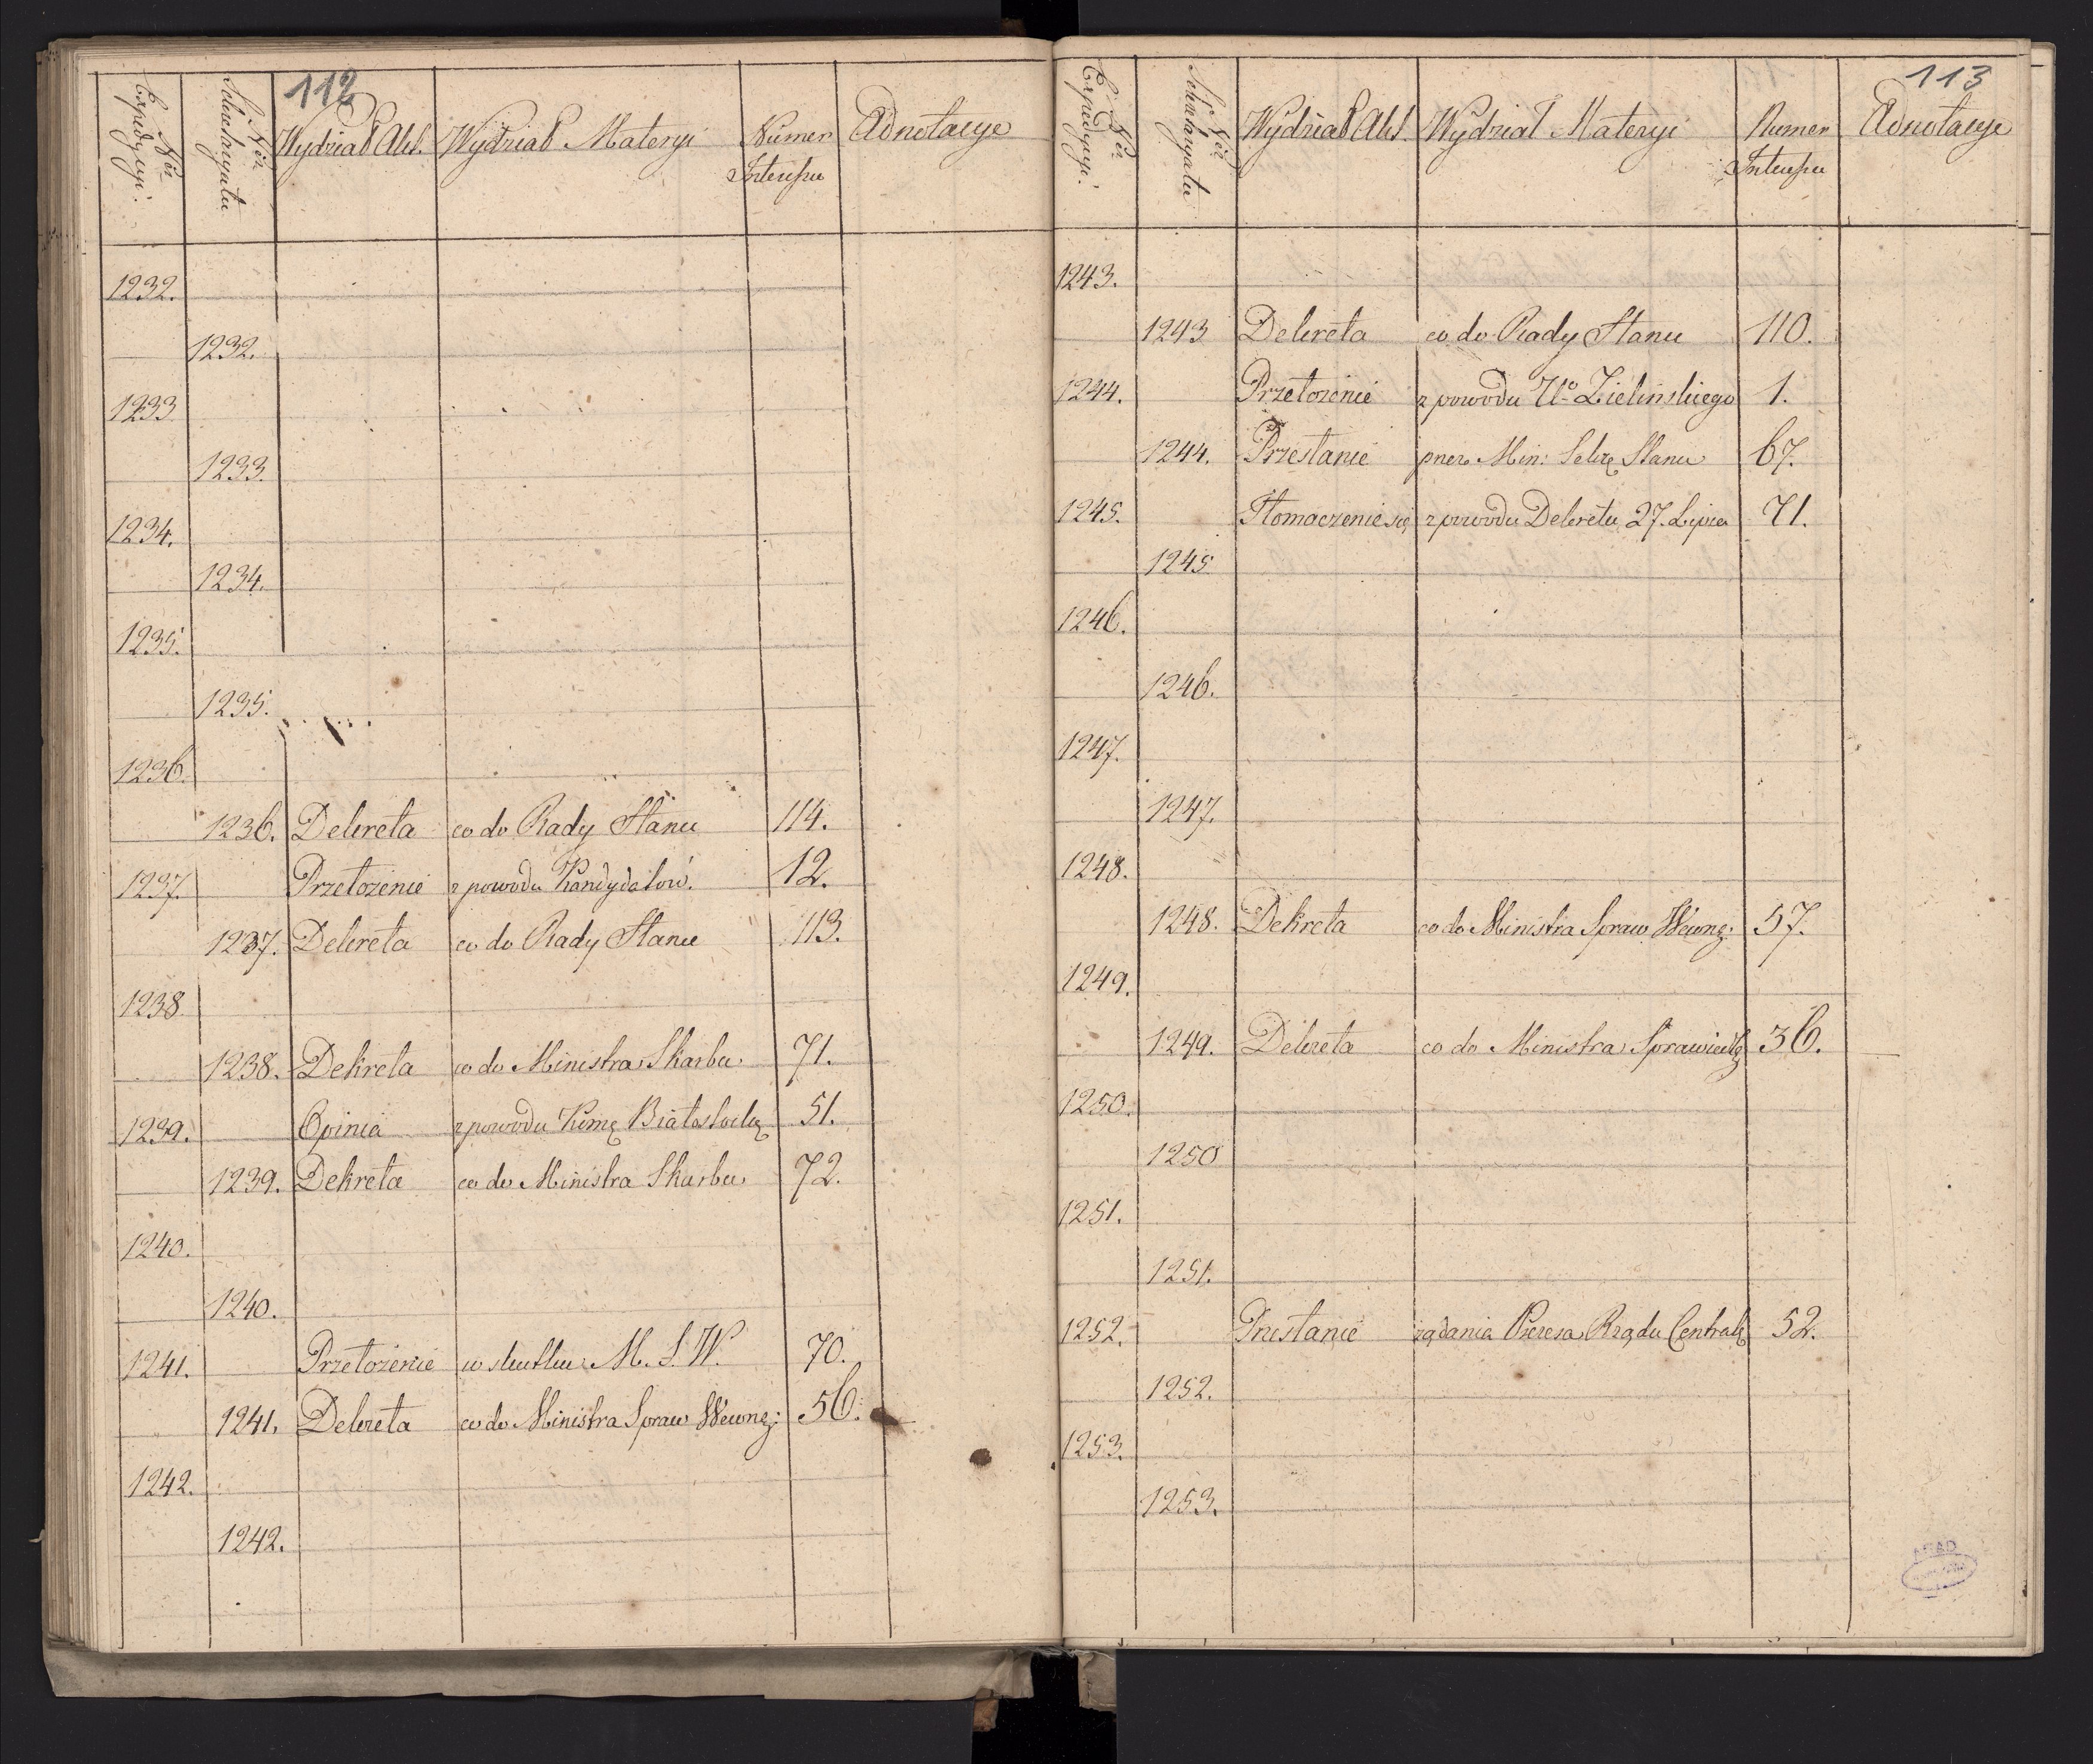 112
Nr Expedycyi.
Nr Sekretaryatu
Wydział Akt.
Wydział Materyi
Numer Interesu
Adnotacye
1232.
1232.
1233
1233.
1234.
1234.
1235.
1235.
1236.
1236. Dekreta co do Rady Stanu 114.
1237. Przełożenie z powodu Kandydatów. 12.
1237. Dekreta co do Rady Stanu 113.
1238.
1238. Dekreta co do Ministra Skarbu 71.
1239. Opinia z powodu Białostocką 51.
1239. Dekreta co do Ministra Skarbu 72.
1240.
1240.
1241. Przełożenie w skutku M. S. W. 70.
1241. Dekreta co do Ministra Spraw Wewnę: 56.
1242.
1242.
113
Nr Expedycyi.
Nr Sekretaryatu
Wydział Akt.
Wydział Materyi
Numer Interesu
Adnotacye
1243.
1243 Dekreta co do Rady Stanu 110.
1244. Przełożenie z powodu Uo Zielinskiego 1.
1244. Przesłanie przez Min: Sekrę Stanu 67.
1245. Tłomaczenie się z powodu Dekretu 27. Lipca 71.
1245
1246.
1246.
1247.
1247.
1248.
1248. Dekreta co do Ministra Spraw Wewnę: 57.
1249.
1249. Dekreta co do Ministra Sprawiedlę 36.
1250.
1250
1251.
1251.
1252. Przesłanie ządania Prezesa Rządu Centralę 52.
1252.
1253.
1253.
AGAD